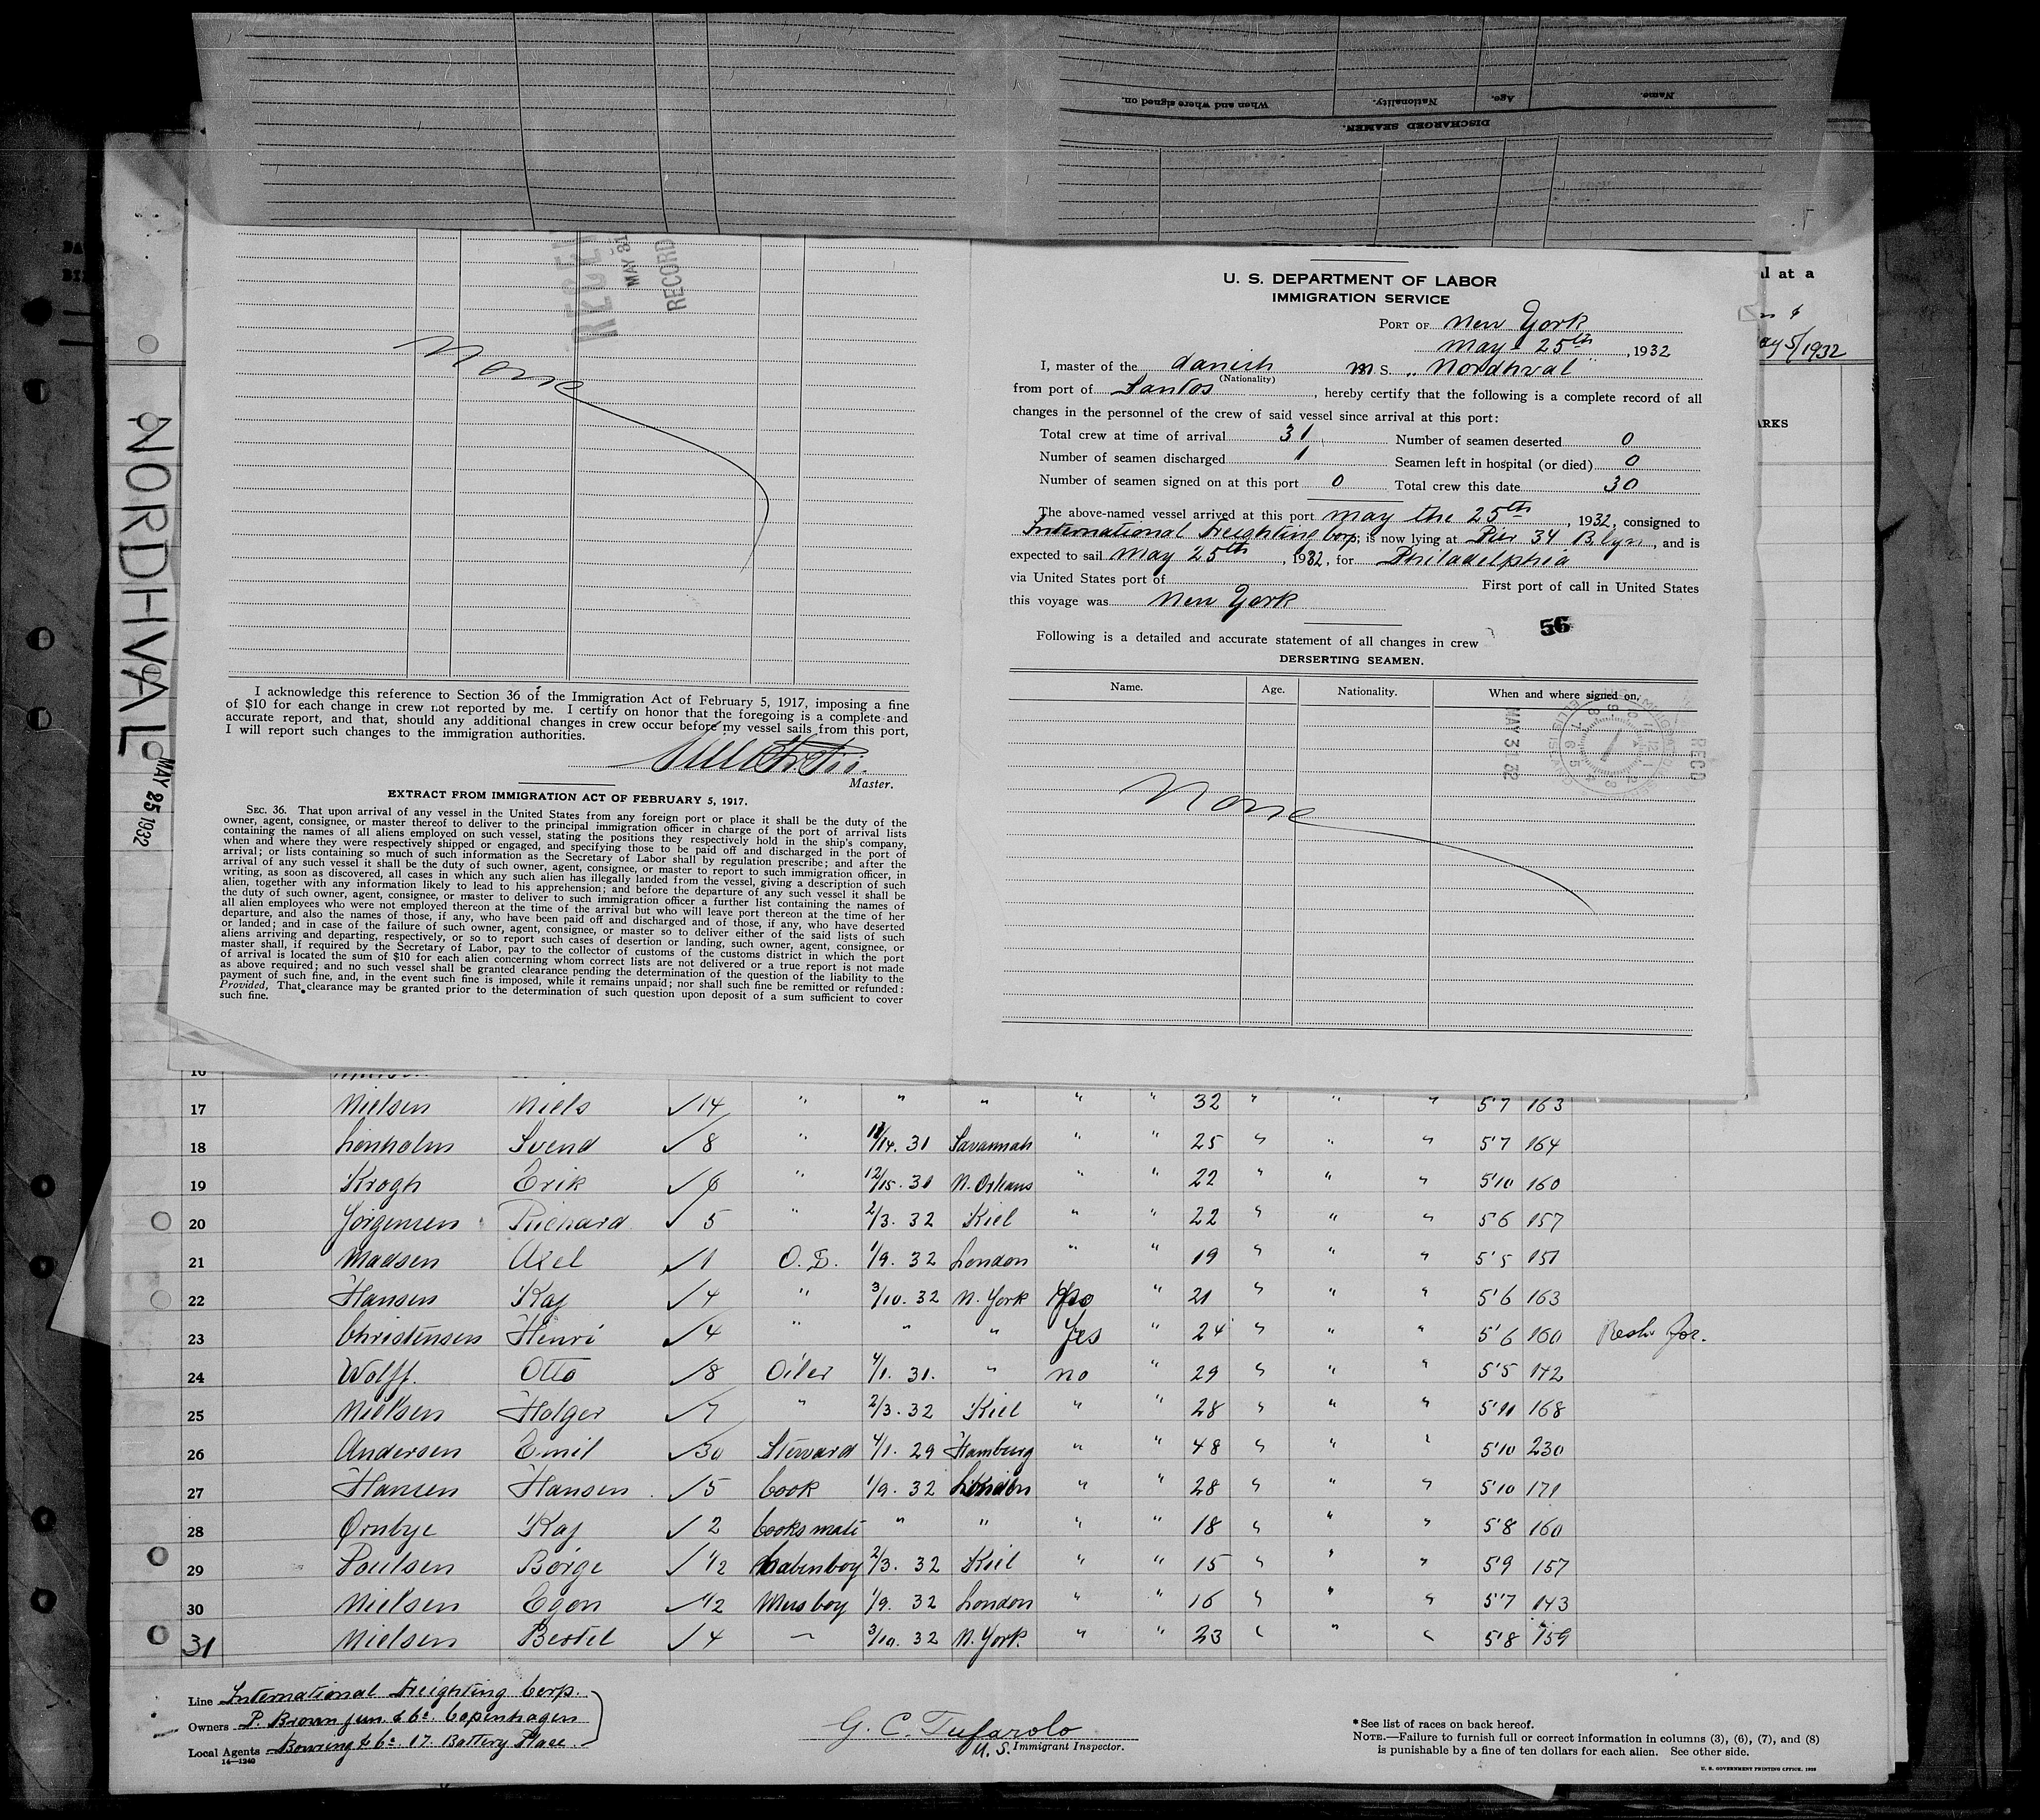 DISCHARGED SEAMEN.
Name. Age. Nationality. When and where signed on.
MAY 31
RECORD
None
I acknowledge this reference to Section 36 of the Immigration Act of February 5, 1917, imposing a fine
of $10 for each change in crew not reported by me. I certify on honor that the foregoing is a complete and
accurate report, and that, should any additional changes in crew occur before my vessel sails from this port,
I will report such changes to the immigration authorities.
Master.
EXTRACT FROM IMMIGRATION ACT OF FEBRUARY 5, 1917.
SEC. 36. That upon arrival of any vessel in the United States from any foreign port or place it shall be the duty of the
owner, agent, consignee, or master thereof to deliver to the principal immigration officer in charge of the port of arrival lists
containing the names of all aliens employed on such vessel, stating the positions they respectively hold in the ship's company,
when and where they were respectively shipped or engaged, and specifying those to be paid off and discharged in the port of
arrival; or lists containing so much of such information as the Secretary of Labor shall by regulation prescribe; and after the
arrival of any such vessel it shall be the duty of such owner, agent, consignee, or master to report to such immigration officer, in
writing, as soon as discovered, all cases in which any such alien has illegally landed from the vessel, giving a description of such
alien, together with any information likely to lead to his apprehension; and before the departure of any such vessel it shall be
the duty of such owner, agent, consignee, or master to deliver to such immigration officer a further list containing the names of
all alien employees who were not employed thereon at the time of the arrival but who will leave port thereon at the time of her
departure, and also the names of those, if any, who have been paid off and discharged and of those, if any, who have deserted
or landed; and in case of the failure of such owner, agent, consignee, or master so to deliver either of the said lists of such
aliens arriving and departing, respectively, or so to report such cases of desertion or landing, such owner, agent, consignee, or
master shall, if required by the Secretary of Labor, pay to the collector of customs of the customs district in which the port
of arrival is located the sum of $10 for each alien concerning whom correct lists are not delivered or a true report is not made
as above required; and no such vessel shall be granted clearance pending the determination of the question of the liability to the
payment of such fine, and, in the event such fine is imposed, while it remains unpaid; nor shall such fine be remitted or refunded:
Provided, That clearance may be granted prior to the determination of such question upon deposit of a sum sufficient to cover
such fine.
U. S. DEPARTMENT OF LABOR
IMMIGRATION SERVICE
PORT OF New York
May 25th, 1932
I, master of the danish M S. „Nordhval"
(Nationality)
from port of Santos, hereby certify that the following is a complete record of all
changes in the personnel of the crew of said vessel since arrival at this port:
Total crew at time of arrival 31 Number of seamen deserted 0
Number of seamen discharged 1 Seamen left in hospital (or died) 0
Number of seamen signed on at this port 0 Total crew this date 30
The above-named vessel arrived at this port May the 25th, 1932, consigned to
International Freighting Corp; is now lying at Pier 34 B.lyn, and is
expected to sail May 25th, 1932, for Philadelphia
via United States port of First port of call in United States
this voyage was New York
56
Following is a detailed and accurate statement of all changes in crew
DERSERTING SEAMEN.
Name. Age. Nationality. When and where signed on.
MAY 31 32
RECD
None
al at a
ay 5/1932
ARKS
NORDHVAL
MAY 25 1932
16
17 Nielsen Niels ✓ 14 " " " " " 32 " " " 5'7 163
18 Lonholm Svend ✓ 8 " 11/14. 31 Savannah " " 25 " " " 5'7 164
19 Krogh Erik ✓ 6 " 12/15. 31 N. Orleans " " 22 " " " 5'10 160
20 Jörgensen Richard ✓ 5 " 2/3. 32 Kiel " " 22 " " " 5'6 157
21 Madsen Axel ✓ 1 O.S. 1/9. 32 London " " 19 " " " 5'5 151
22 Hansen Kaj ✓ 4 " 3/10. 32 N. York No " 21 " " " 5'6 163
23 Christensen Henri ✓ 4 " " " Yes " 24 " " " 5'6 160
24 Wolff. Otto ✓ 8 Oiler 4/1. 31. " no " 29 " " " 5'5 142
25 Nielsen Holger ✓ 7 " 2/3. 32 Kiel " " 28 " " " 5'11 168
26 Andersen Emil ✓ 30 Steward 4/1. 29 Hamburg " " 48 " " " 5'10 230
27 Hansen Hansen ✓ 5 Cook 1/9. 32 London " " 28 " " " 5'10 171
28 Ørnbye Kaj ✓ 2 Cooks mate " " " " 18 " " " 5'8 160
29 Poulsen Börge ✓ 1/2 Cabinboy 2/3. 32 Kiel " " 15 " " " 5'9 157
30 Nielsen Egon ✓ 1/2 Messboy 1/9. 32 London " " 16 " " " 5'7 143
31 Nielsen Bertel ✓ 4 — 3/10. 32 N. York. " " 23 " " " 5'8 159
Line International Freighting Corp.
Owners P. Brown jun. & Co. Copenhagen
Local Agents Bowring & Co. 17. Battery Place.
14—1240
G. C. Tufarolo
U. S. Immigrant Inspector.
*See list of races on back hereof.
NOTE.—Failure to furnish full or correct information in columns (3), (6), (7), and (8)
is punishable by a fine of ten dollars for each alien. See other side.
U. S. GOVERNMENT PRINTING OFFICE. 1929